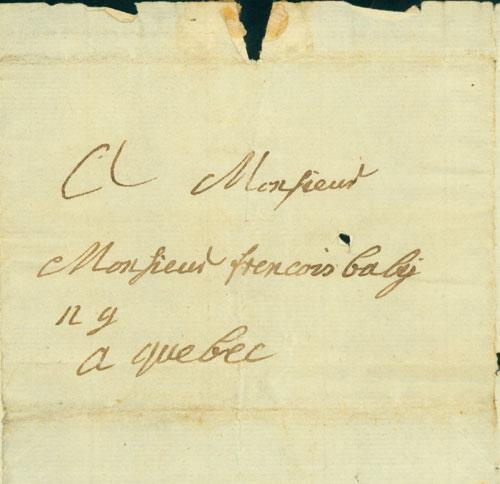 A Monsieur
Monsieur frencois baby
n g
a quebec